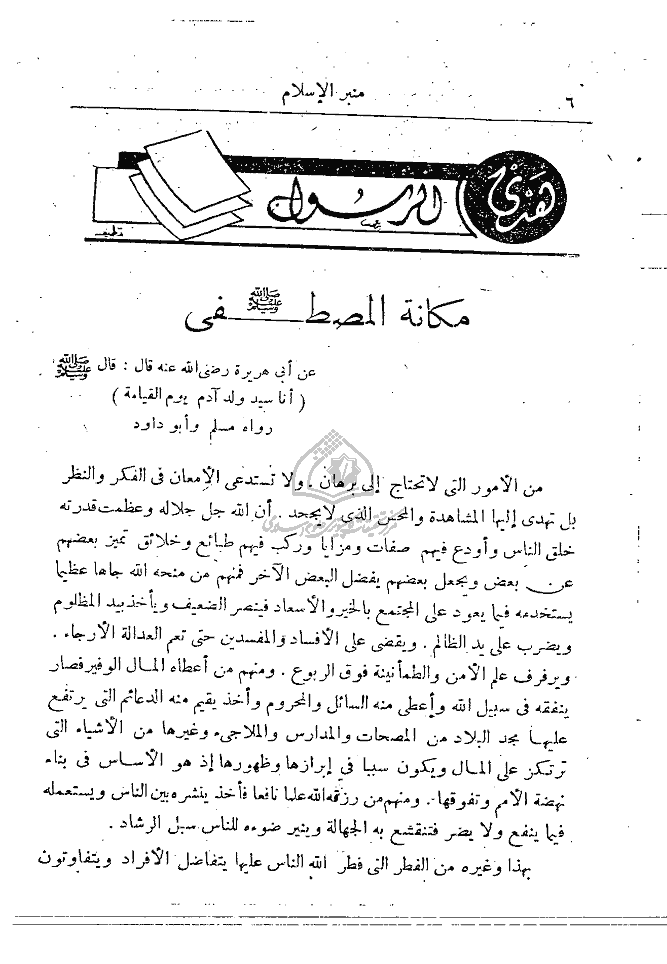 منبر الإسلام
٦
هدى
الرسول
مكانة المصطفى ﷺ
عن أبى هريرة رضى الله عنه قال : قال ﷺ
( أنا سيد ولد آدم يوم القيامة )
رواه مسلم وأبو داود
من الأمور التى لاتحتاج إلى برهان . ولا تستدعى الإمعان فى الفكر والنظر
بل تهدى إليها المشاهدة والمحس الذى لايجحد . أن الله جل جلاله وعظمت قدرته
خلق الناس وأودع فيهم صفات ومزايا وركب فيهم طبائع وخلائق تميز بعضهم
عن بعض ويجعل بعضهم يفضل البعض الآخر فمنهم من منحه الله جاها عظيما
يستخدمه فيما يعود على المجتمع بالخير والأسعاد فينصر الضعيف ويأخذ بيد المظلوم
ويضرب على يد الظالم . ويقضى على الأفساد والمفسدين حتى تعم العدالة الأرجاء .
ويرفرف علم الأمن والطمأنينة فوق الربوع . ومنهم من أعطاه المال الوفير فصار
ينفقه فى سبيل الله وأعطى منه السائل والمحروم وأخذ يقيم منه الدعائم التى يرتفع
عليها مجد البلاد من المصحات والمدارس والملاجىء وغيرها من الأشياء التى
ترتكز على المال ويكون سببا فى إبرازها وظهورها إذ هو الأساس فى بناء
نهضة الأمم وتفوقها . ومنهم من رزقه الله علما نافعا فأخذ ينشره بين الناس ويستعمله
فيما ينفع ولا يضر فتنقشع به الجهالة وينير ضوءه للناس سبل الرشاد .
بهذا وغيره من الفطر التى فطر الله الناس عليها يتفاضل الأفراد ويتفاوتون